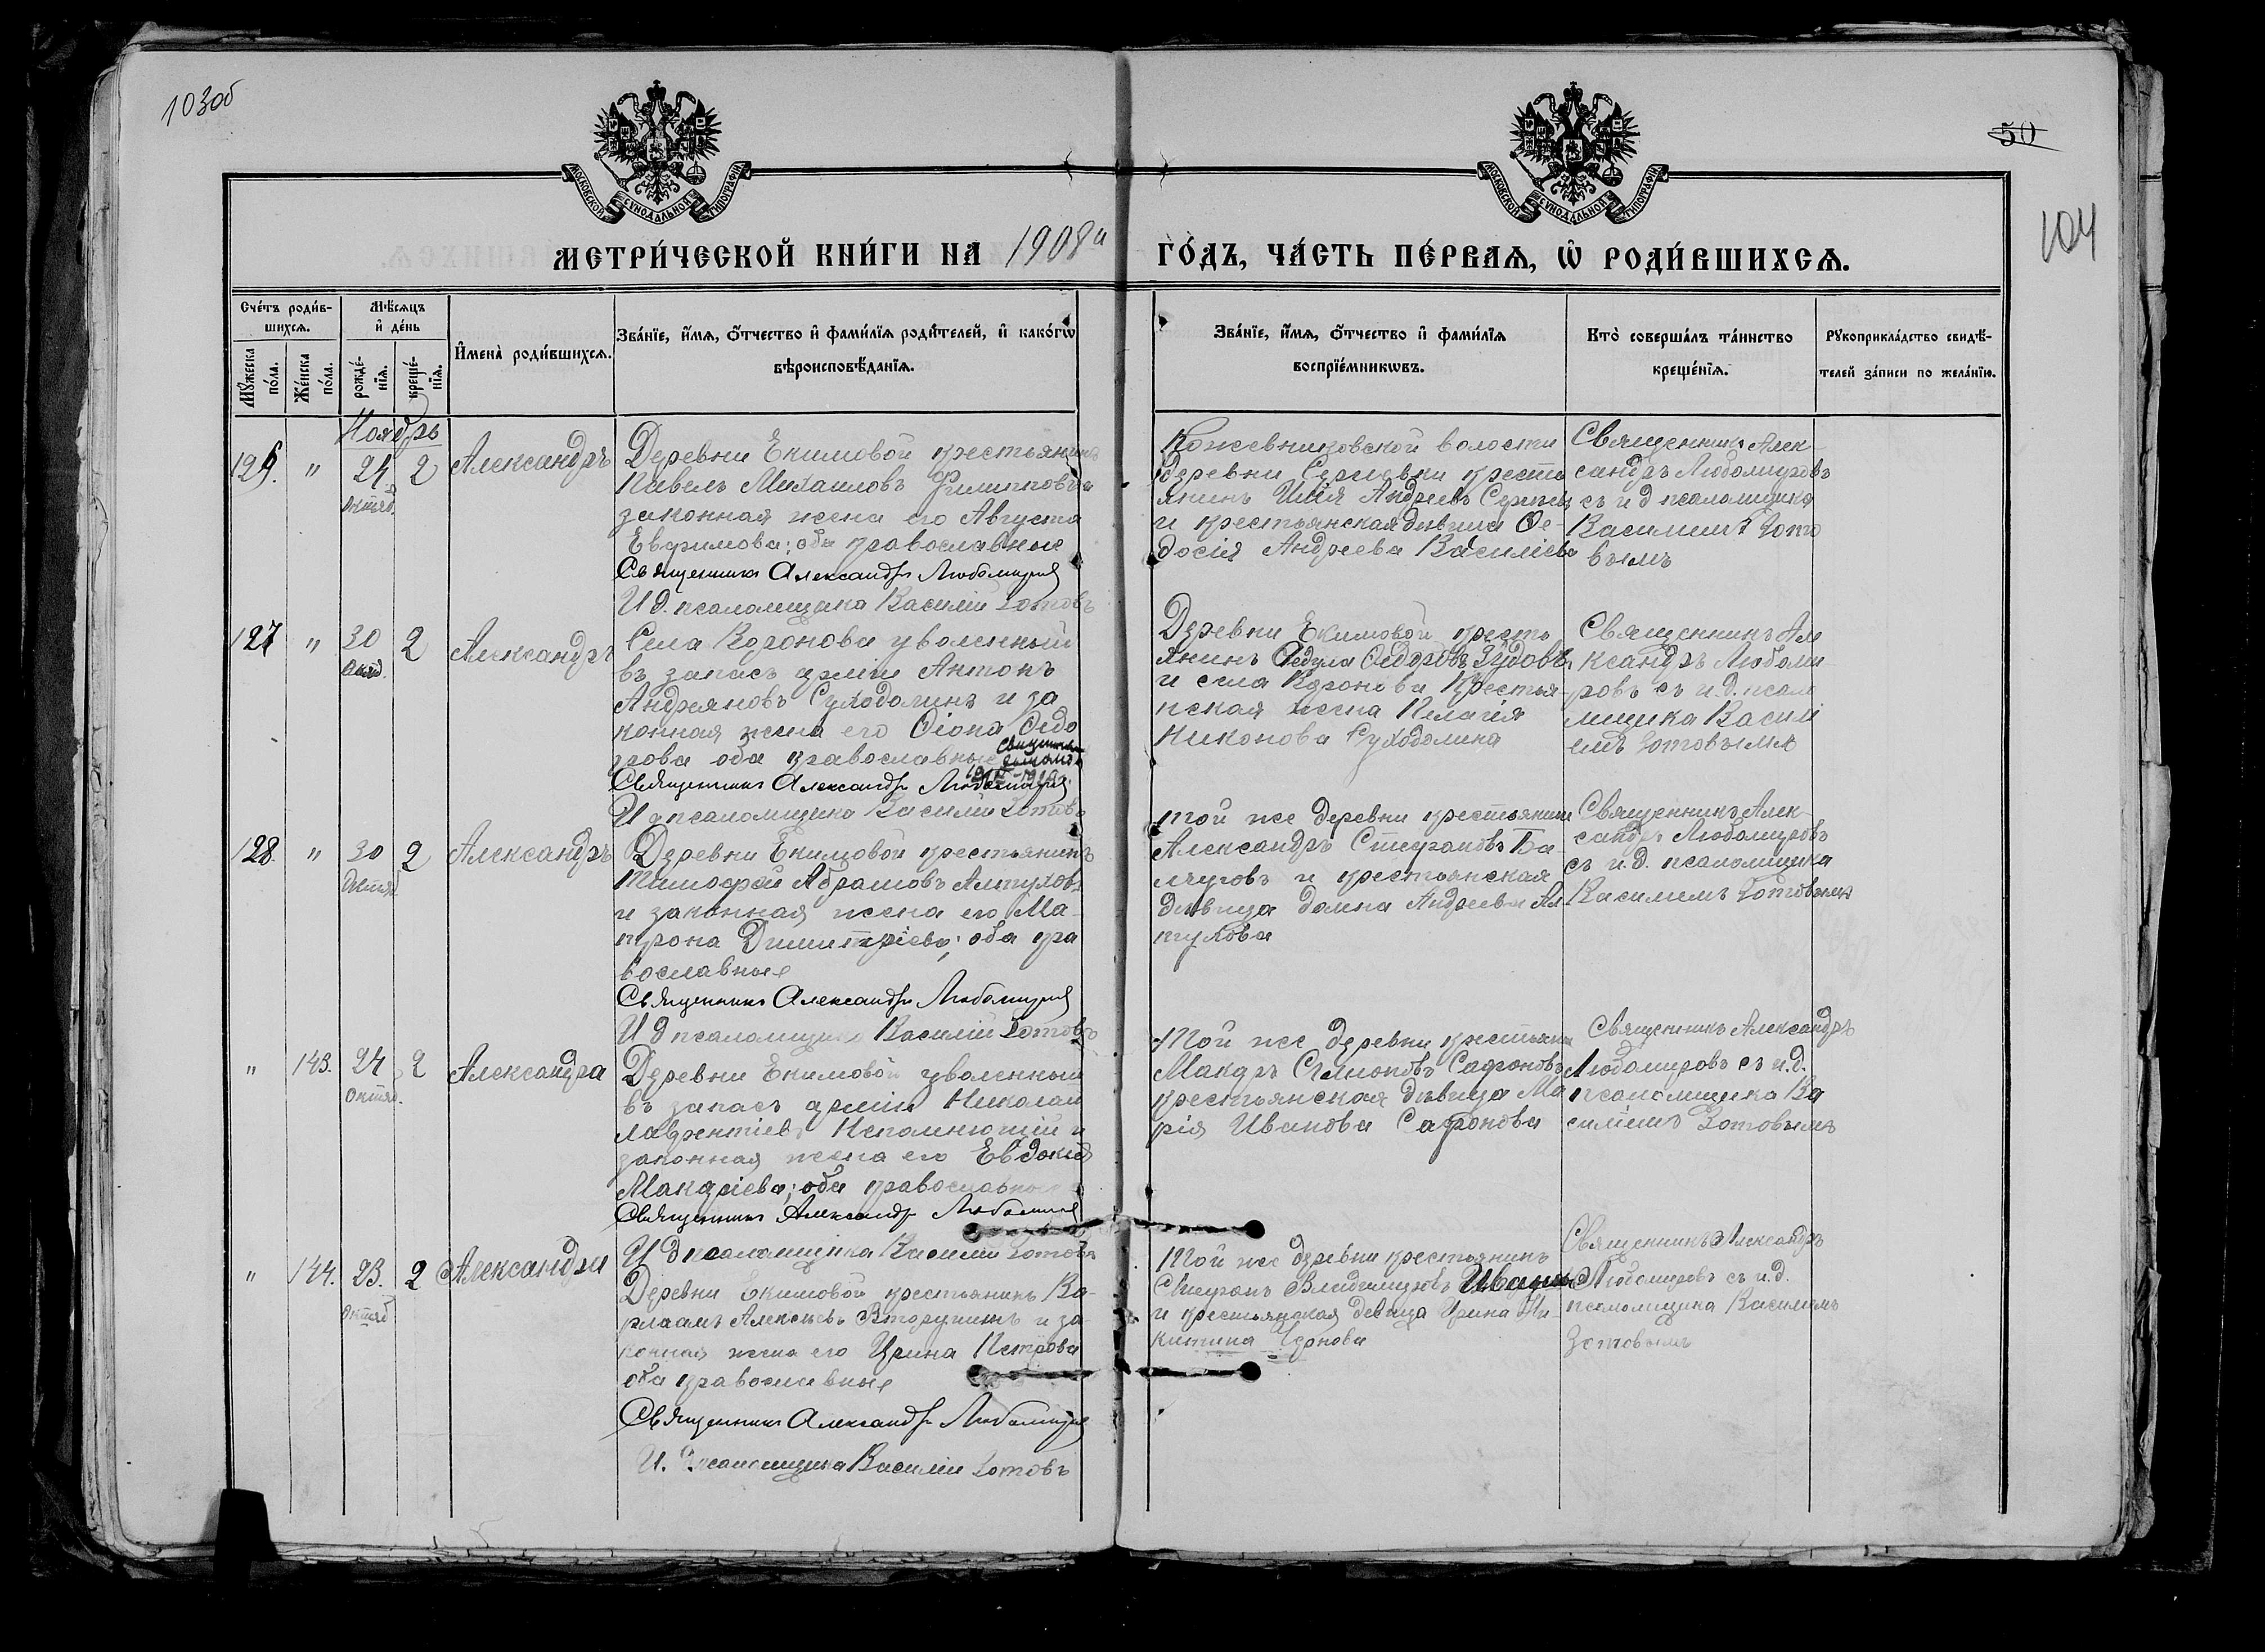 103об
50
104
МОСКОВСКОЙ СѴНОДАЛЬНОЙ ТИПОГРАФІИ
МОСКОВСКОЙ СѴНОДАЛЬНОЙ ТИПОГРАФІИ
МЕТРИ́ЧЕСКОЙ КНИ́ГИ НА 1908й ГО́ДЪ, ЧА́СТЬ ПЕ́РВАЯ, Ѡ҆ РОДИ́ВШИХСЯ.
Сче́тъ роди́в-
шихся.
Мꙋ́жеска по́ла.
Же́нска по́ла.
Мѣ́сяцъ
и҆ де́нь
рожде́-
нїя.
креще́-
нїя.
И҆мена̀ роди́вшихся.
Зва́нїе, и҆́мя, ѻ҆́тчество и҆ фами́лїя роди́телей, и҆ како́гѡ
вѣроисповѣ́данїя.
Зва́нїе, и҆́мя, ѻ҆́тчество и҆ фами́лїя
воспрїе́мникѡвъ.
Кто̀ соверша́лъ та́инство
креще́нїя.
Рꙋкоприкла́дство свидѣ́-
телей за́писи по жела́нїю.
Ноябрь
126. " 24 2 Александръ
Октяб.
Деревни Екимовой крестьянинъ
Павелъ Михаиловъ Филипповъ и
законная жена его Августа
Евфимова; оба православные
Священникъ Александръ Любомировъ
И д. псаломщика Василій Зотовъ
Кожевниковской волости
деревни Сергеевки кресть
янинъ Илія Андреевъ
и крестьянская дѣвица Ѳе-
досія Андреева Василіева
Священникъ Алек-
сандръ Любомировъ
съ и д псаломщика
Василіемъ Зото
вымъ
127 " 30 2 Александръ
Октяб.
Села Воронова уволенный
въ запасъ арміи Антонъ
Андреяновъ Суходолинъ и за
конная жена его Ѳіона Ѳедо
рова оба православные
Священникъ Александръ Любомировъ
И д псаломщика Василій Зотовъ
Деревни Екимовой кресть
янинъ Ѳедулъ Ѳедоровъ Зудовъ
и села Воронова крестья-
нская жена Пелагія
Никонова Суходолина
Священникъ Але
ксандръ Любоми-
ровъ съ и.д. псало
мщика Василі
емъ Зотовымъ
128. " 30 2 Александръ
Октяб.
Деревни Екимовой крестьянинъ
Тимофей Абрамовъ Алтуховъ
и законная жена его Ма-
трона Димитріева; оба пра
вославные
Священникъ Александръ Любомировъ
И д псаломщика Василій Зотовъ
той же деревни крестьянинъ
Александръ Стефановъ Ба-
лчуговъ и крестьянская
дѣвица Домна Андреева Ал-
тухова
Священникъ Алек-
сандръ Любомировъ
съ и.д. псаломщика
Василіемъ Зотовымъ
" 143. 24 2 Александра
Октяб.
Деревни Екимовой уволенный
въ запасъ арміи Николай
Лаврентіевъ Непомнющій и
законная жена его Евдокія
Макаріева; оба православные
Священникъ Александръ Любомировъ
И д псаломщика Василій Зотовъ
Той же деревни крестьянинъ
Макаръ Симоновъ Сафоновъ
крестьянская дѣвица Ма
рія Иванова Сафонова
Священникъ Александръ
Любомировъ съ и.д.
псаломщика Ва
силіемъ Зотовымъ
" 144. 23. 2 Александра
Октяб
Деревни Екимовой крестьянинъ Ва-
рлаамъ Алексѣевъ Вторушинъ и за-
конная жена его Ирина Петрова
оба православные
Священникъ Александръ Любомировъ
И. д псаломщика Василій Зотовъ
Той же деревни крестьянинъ
Стефанъ Владимировъ
и крестьянская девица Ирина Ни-
китина Чернова
Священникъ Александръ
Любомировъ съ и.д.
псаломщика Василіемъ
Зотовымъ